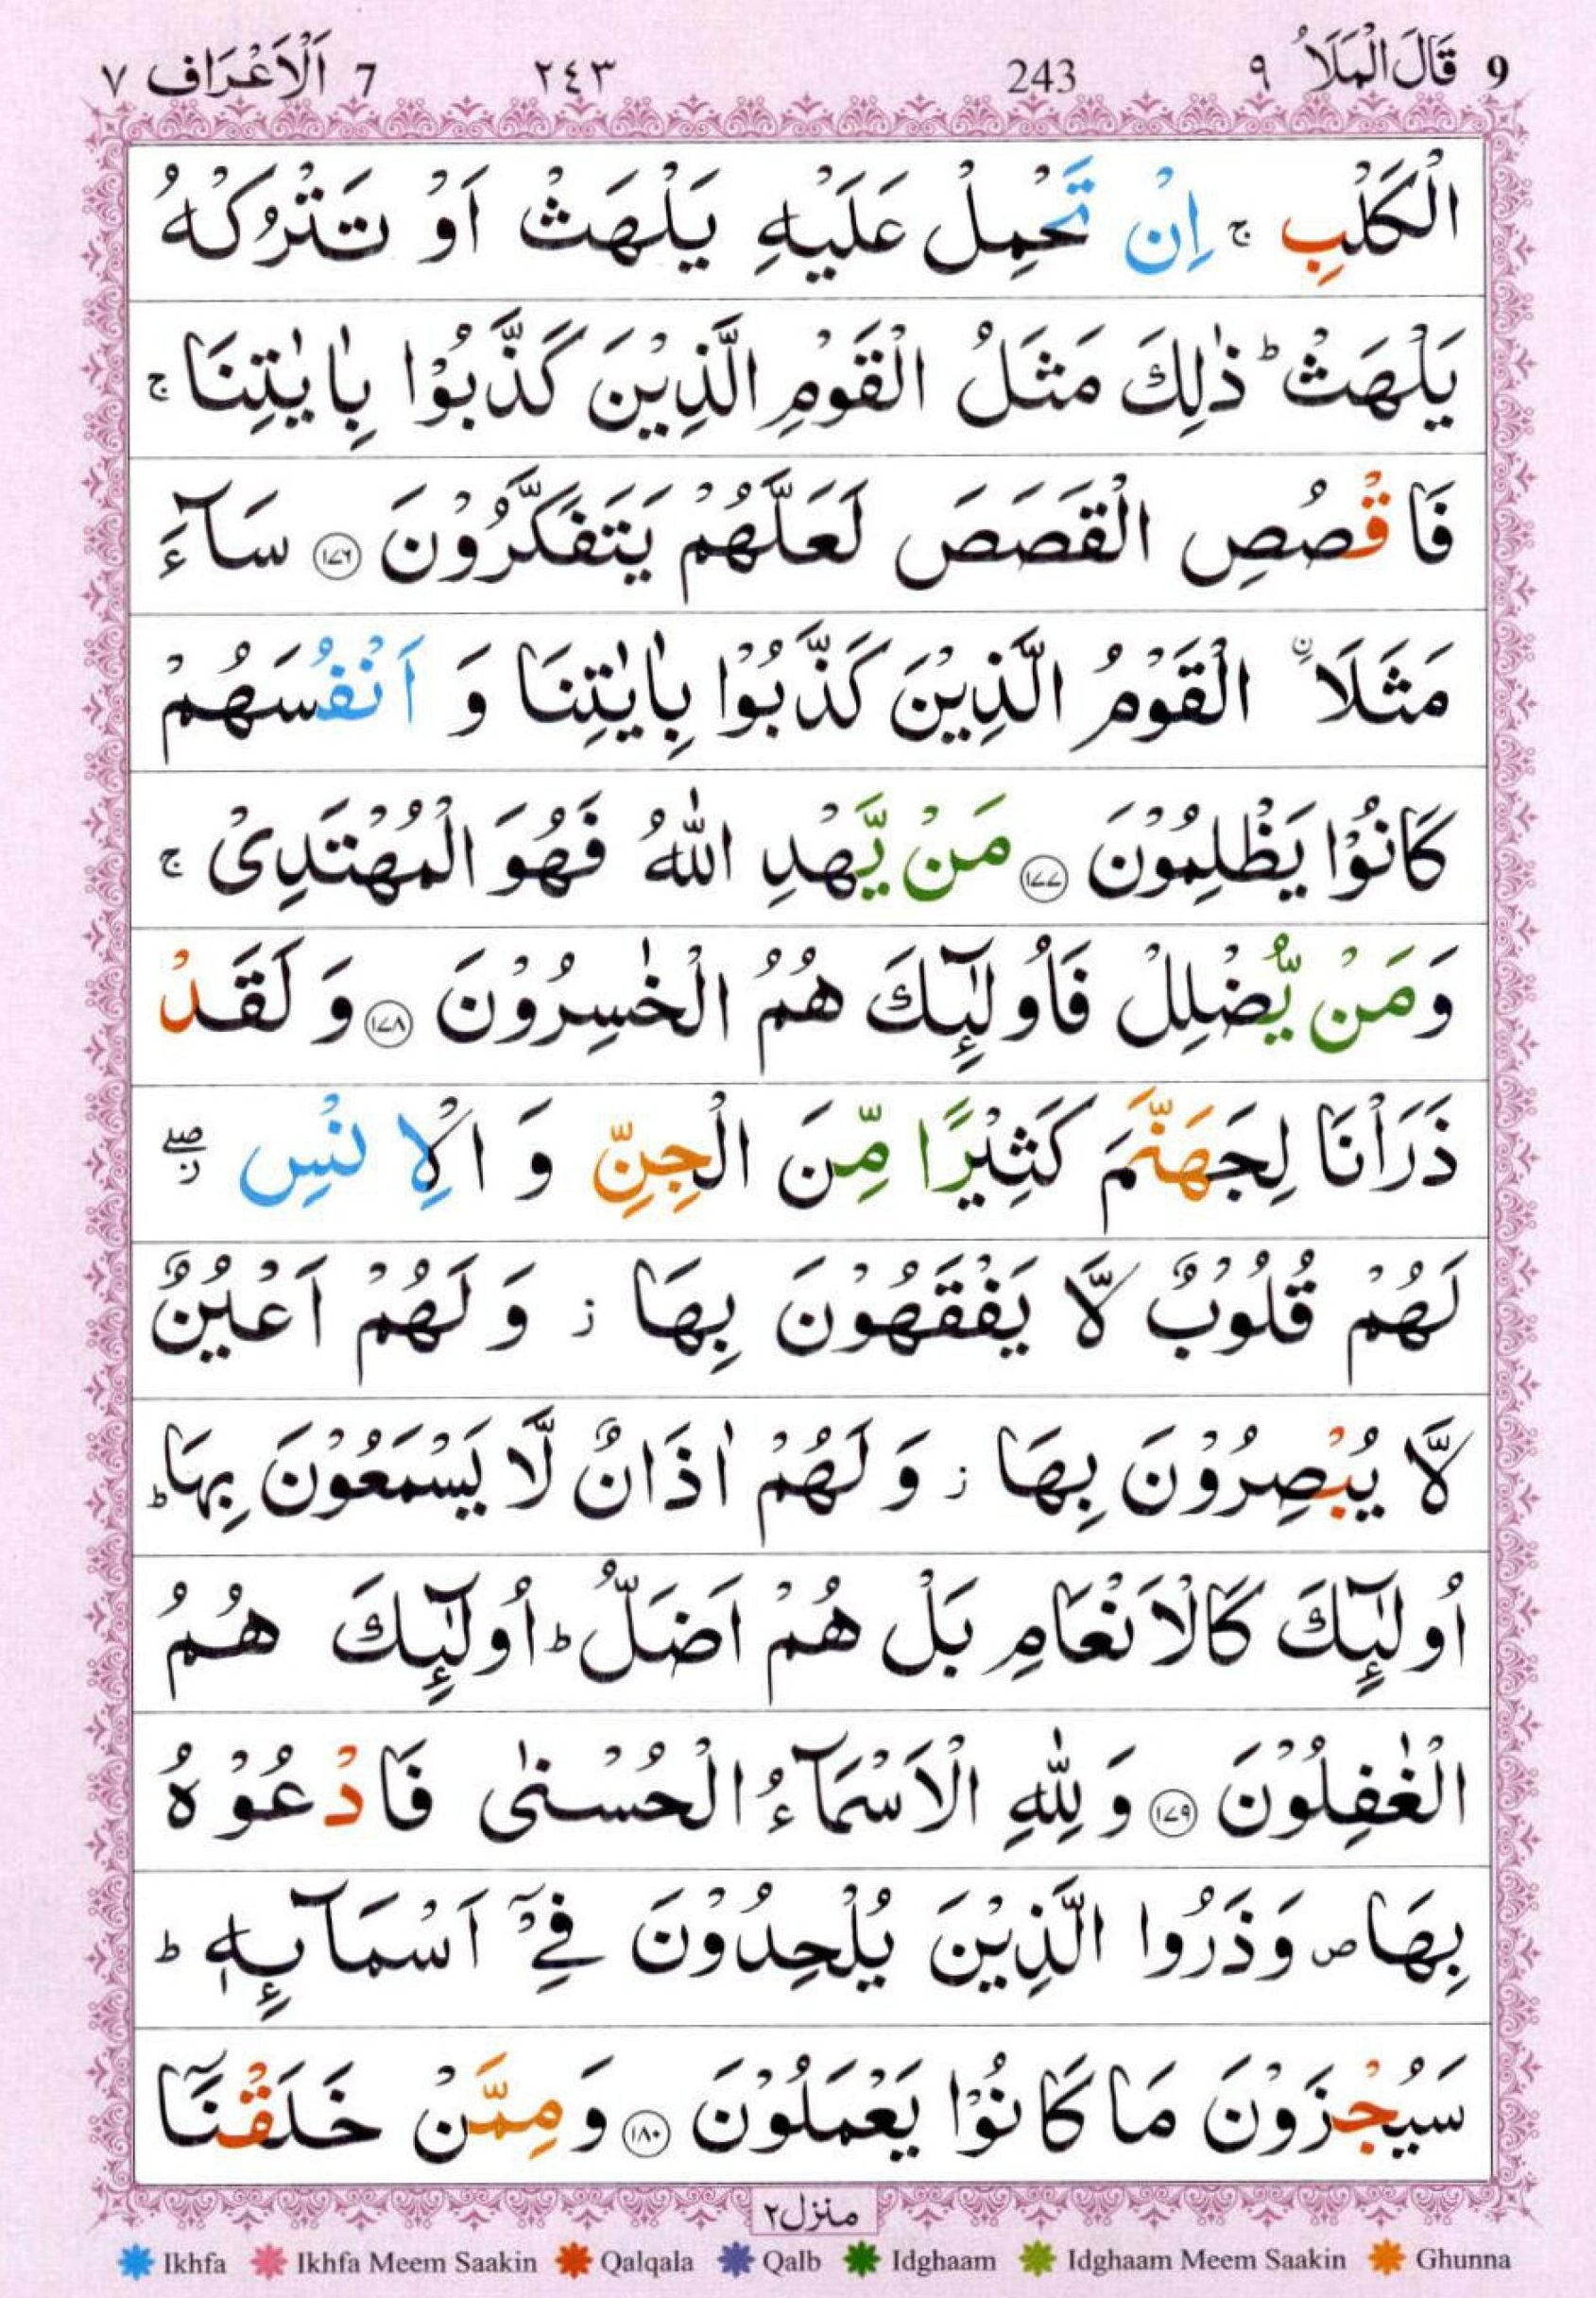 9 قَالَ الْمَلَاُ ٩ 243 ٢٤٣ 7 اَلْاَعْرَاف ٧
الْكَلْبِ ۚ اِنْ تَحْمِلْ عَلَيْهِ يَلْهَثْ اَوْ تَتْرُكْهُ
يَلْهَثْ ؕ ذٰلِكَ مَثَلُ الْقَوْمِ الَّذِيْنَ كَذَّبُوْا بِاٰيٰتِنَا ۚ
فَاقْصُصِ الْقَصَصَ لَعَلَّهُمْ يَتَفَكَّرُوْنَ ﴿۱۷۶﴾ سَآءَ
مَثَلَاۨ الْقَوْمُ الَّذِيْنَ كَذَّبُوْا بِاٰيٰتِنَا وَ اَنْفُسَهُمْ
كَانُوْا يَظْلِمُوْنَ ﴿۱۷۷﴾ مَنْ يَّهْدِ اللّٰهُ فَهُوَ الْمُهْتَدِىْ ۚ
وَمَنْ يُّضْلِلْ فَاُولٰٓئِكَ هُمُ الْخٰسِرُوْنَ ﴿۱۷۸﴾ وَ لَقَدْ
ذَرَاْنَا لِجَهَنَّمَ كَثِيْرًا مِّنَ الْجِنِّ وَ الْاِنْسِ ۖ ز
لَهُمْ قُلُوْبٌ لَّا يَفْقَهُوْنَ بِهَا ز وَ لَهُمْ اَعْيُنٌ
لَّا يُبْصِرُوْنَ بِهَا ز وَ لَهُمْ اٰذَانٌ لَّا يَسْمَعُوْنَ بِهَا ؕ
اُولٰٓئِكَ كَالْاَنْعَامِ بَلْ هُمْ اَضَلُّ ؕ اُولٰٓئِكَ هُمُ
الْغٰفِلُوْنَ ﴿۱۷۹﴾ وَ لِلّٰهِ الْاَسْمَآءُ الْحُسْنٰى فَادْعُوْهُ
بِهَا ص وَذَرُوا الَّذِيْنَ يُلْحِدُوْنَ فِىْۤ اَسْمَآئِهٖ ؕ
سَيُجْزَوْنَ مَا كَانُوْا يَعْمَلُوْنَ ﴿۱۸۰﴾ وَ مِمَّنْ خَلَقْنَاۤ
منزل۲
Ikhfa Ikhfa Meem Saakin Qalqala Qalb Idghaam Idghaam Meem Saakin Ghunna